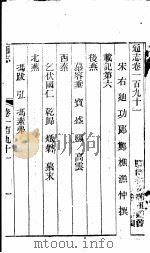 通志卷一百九十一
宋右廸功郎鄭樵漁仲撰
載記第六
後燕
慕容垂 寶 盛 熙 高雲
西秦
乞伏國仁 乾歸 熾磐 慕末
北燕
馮跋 弘 馮素弗
通志 卷一百九十一 一